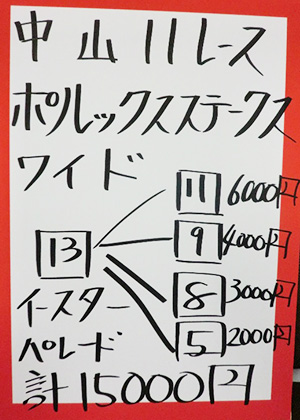 中山11レース
ポルックスステークス
ワイド
11 6000円
13 9 4000円
8 3000円
イースター
パレード 5 2000円
計15000円